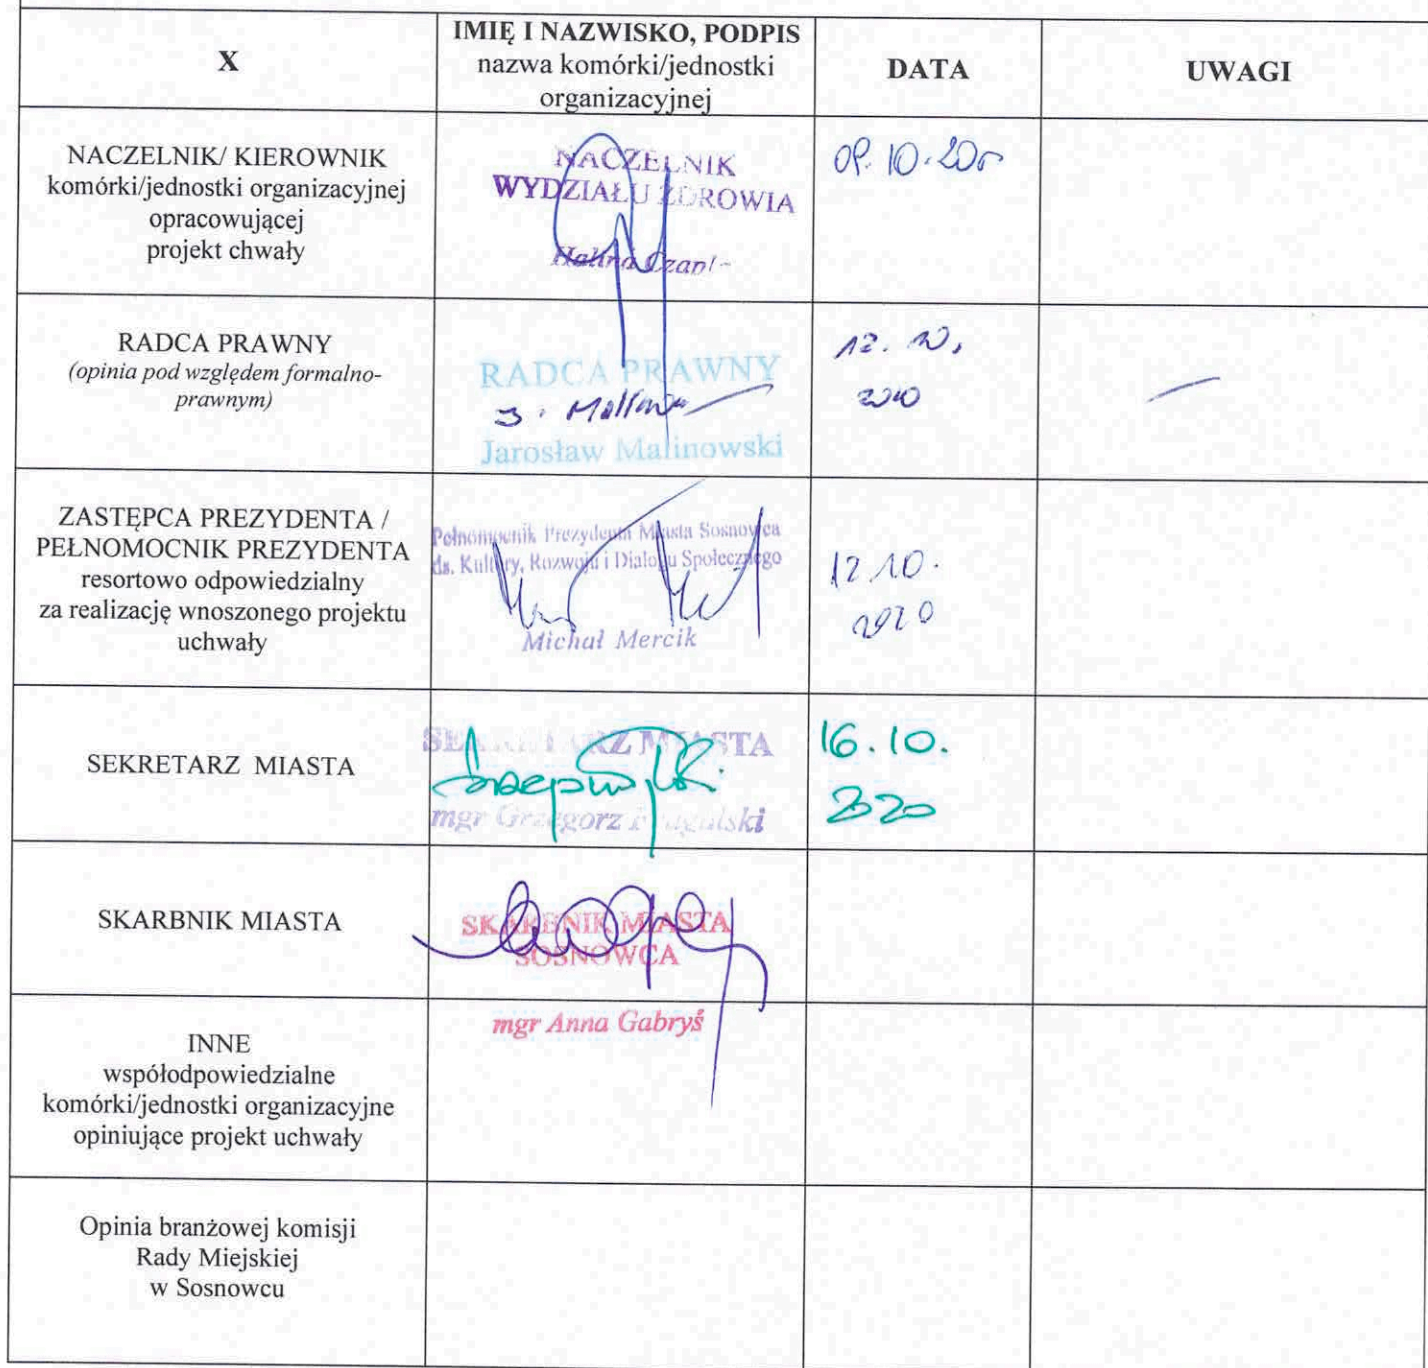 X
IMIĘ I NAZWISKO, PODPIS
nazwa komórki/jednostki
organizacyjnej
DATA
UWAGI
NACZELNIK/ KIEROWNIK
komórki/jednostki organizacyjnej
opracowującej
projekt chwały
NACZELNIK
WYDZIAŁU ZDROWIA
Halina
RADCA PRAWNY
(opinia pod względem formalno-
prawnym)
RADCA PRAWNY
Jarosław Malinowski
12. 10,
2020
ZASTĘPCA PREZYDENTA /
PEŁNOMOCNIK PREZYDENTA
resortowo odpowiedzialny
za realizację wnoszonego projektu
uchwały
Pełnomocnik Prezydenta Miasta Sosnowca
ds. Kultury, Rozwoju i Dialogu Społecznego
Michał Mercik
12.10.
2020
SEKRETARZ MIASTA
SEKRETARZ MIASTA
mgr Grzegorz
16.10.
2020
SKARBNIK MIASTA
SKARBNIK MIASTA
SOSNOWCA
mgr Anna Gabryś
INNE
współodpowiedzialne
komórki/jednostki organizacyjne
opiniujące projekt uchwały
Opinia branżowej komisji
Rady Miejskiej
w Sosnowcu